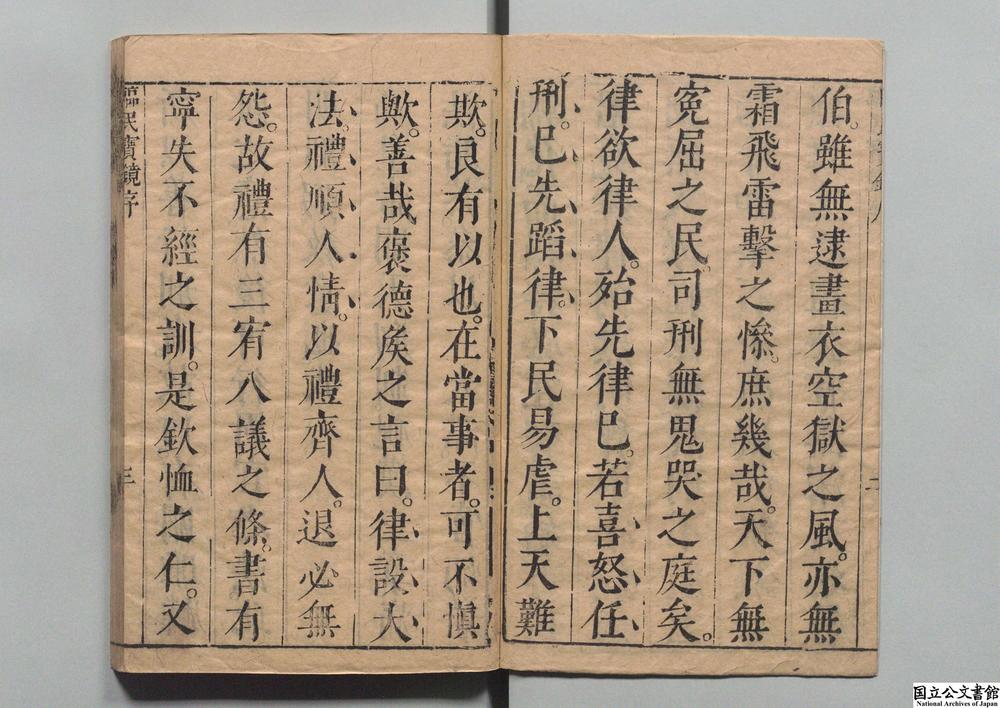 伯。雖無逮畫衣空獄之風。亦無
霜飛雷擊之慘。庶幾哉。天下無
寃屈之民。司刑無鬼哭之庭矣。
律欲律人。殆先律己。若喜怒任
刑。已先蹈律。下民易虐。上天難
欺。良有以也。在當事者。可不愼
歟。善哉褒德矦之言曰。律設大
法。禮順人情。以禮齊人。退必無
怨。故禮有三宥八議之條。書有
寧失不經之訓。是欽恤之仁。又
臨民寶鏡序
三
国立公文書館
National Archives of Japan